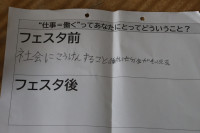 "仕事=働く"ってあなたにとってどういうこと?
フェスタ前
社会にこうけんすること
フェスタ後